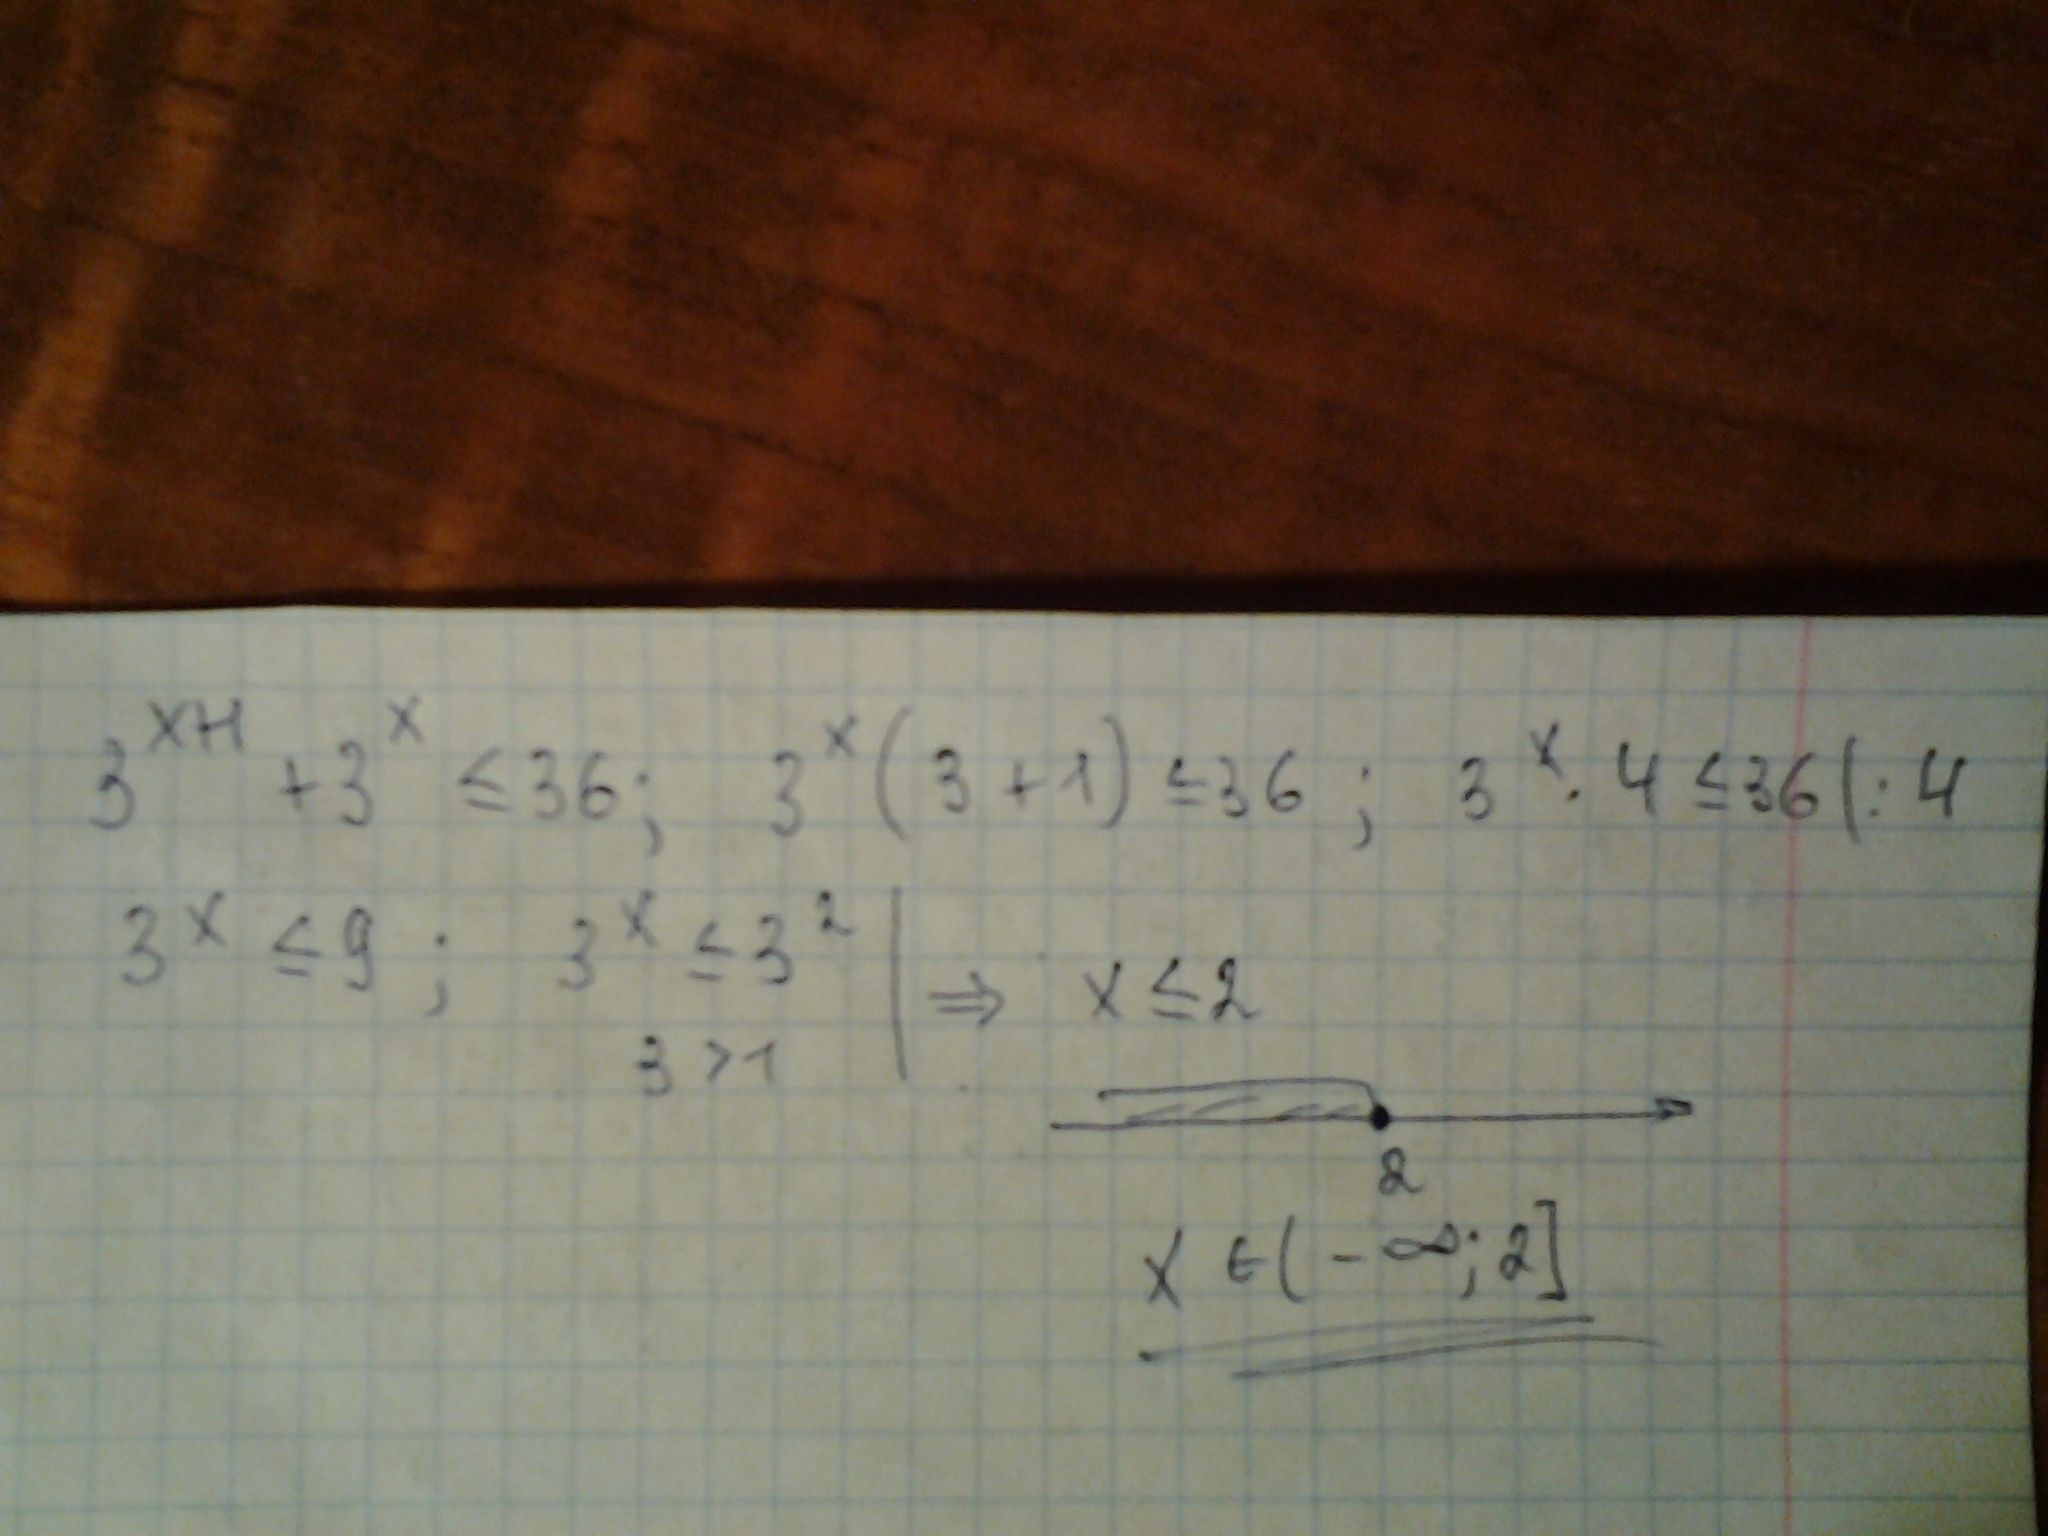 3^(x+1) + 3^x ≤ 36; 3^x (3 + 1) ≤ 36 ; 3^x · 4 ≤ 36 | : 4
3^x ≤ 9 ; 3^x ≤ 3^2 | ⇒ x ≤ 2
3 > 1
2
x ∈ (-∞; 2]